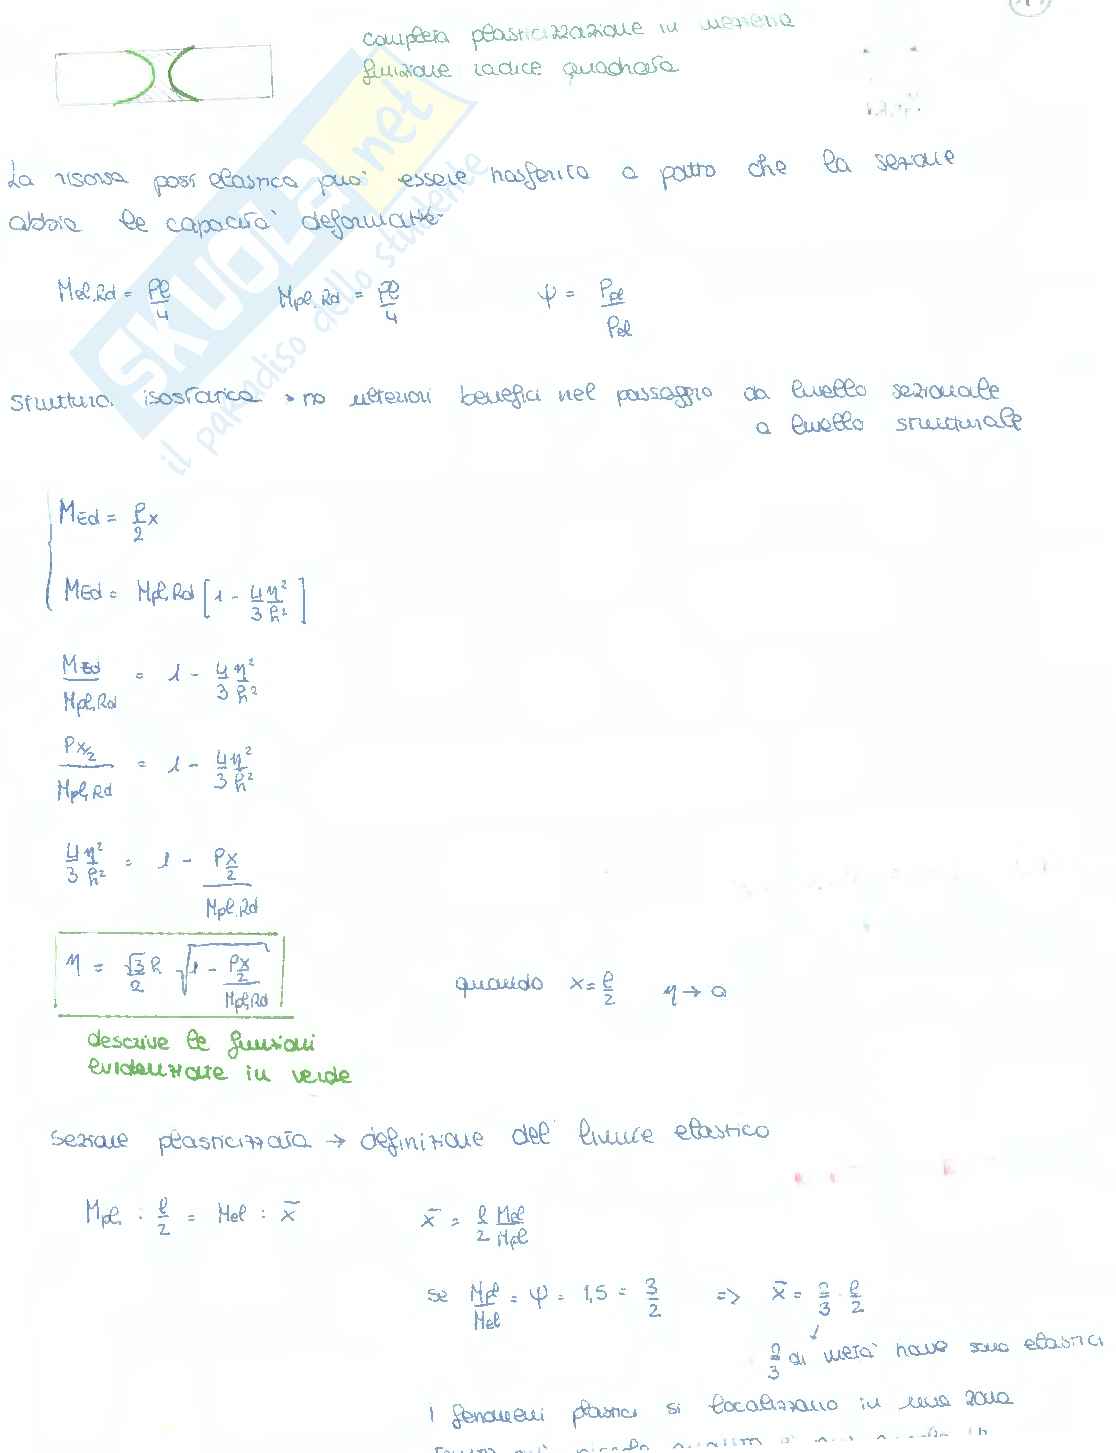 completa plasticizzazione in mezzeria
funzione radice quadrata
La risorsa post elastica può essere trasferita a patto che la sezione
abbia le capacità deformative
Mel,Rd = Pl/4 Mpl,Rd = Pl/4 ψ = Ppl/Pel
struttura isostatica → no ulteriori benefici nel passaggio da livello sezionale
a livello strutturale
MEd = P/2 x
MEd = Mpl,Rd [1 - 4/3 η²/h²]
MEd/Mpl,Rd = 1 - 4/3 η²/h²
Px/2 / Mpl,Rd = 1 - 4/3 η²/h²
4/3 η²/h² = 1 - Px/2 / Mpl,Rd
η = √3/2 h √(1 - Px/2 / Mpl,Rd) quando x = l/2 η → 0
descrive le funzioni
evidenziate in verde
sezione plasticizzata → definizione del limite elastico
Mpl : l/2 = Mel : x̄ x̄ = l/2 Mel/Mpl
se Mpl/Mel = ψ = 1,5 = 3/2 => x̄ = 2/3 · l/2
2/3 di metà trave sono elastici
I fenomeni plastici si localizzano in una zona
SKUOLA.net
il paradiso dello studente